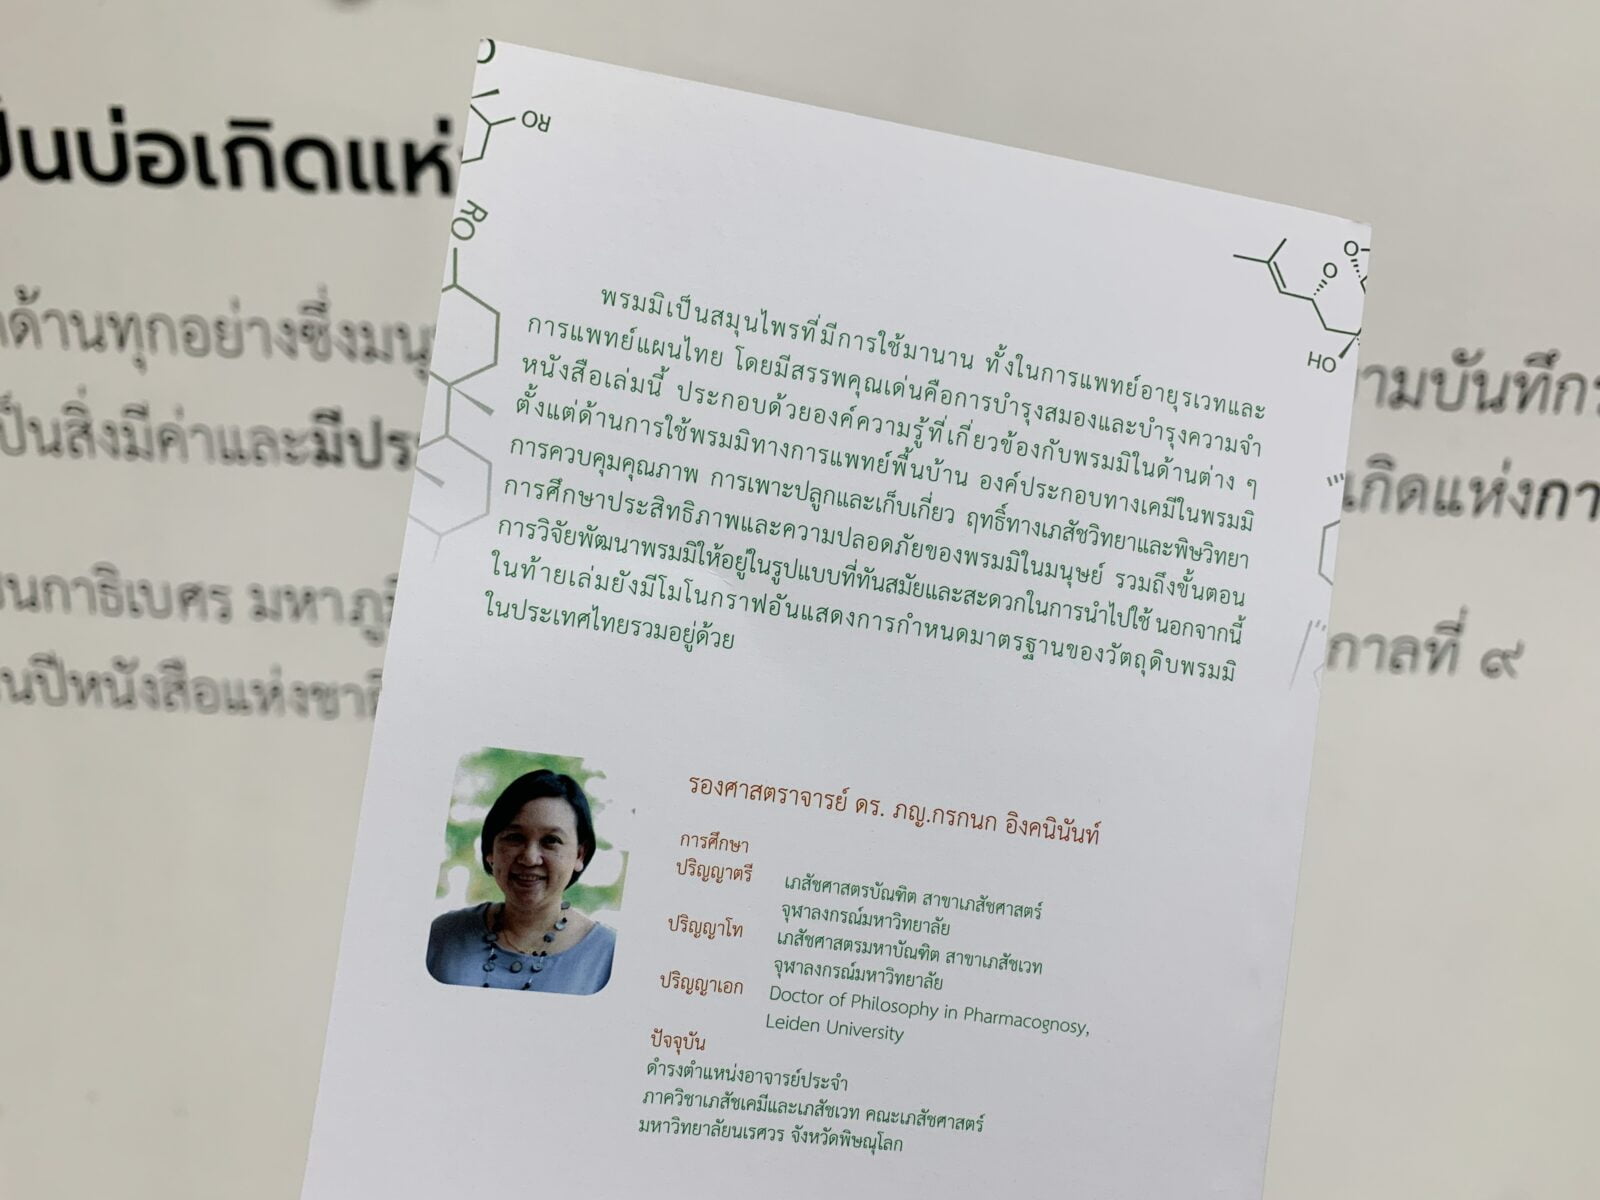 ป็นบ่อเกิดแห่
ด้านทุกอย่างซึ่งมนุ
ป็นสิ่งมีค่าและมีประ
นกาธิเบศร มหาภูมิ
นปีหนังสือแห่งชาติ
O
RO
RO
O
O
HO
พรมมิเป็นสมุนไพรที่มีการใช้มานาน ทั้งในการแพทย์อายุรเวทและ
การแพทย์แผนไทย โดยมีสรรพคุณเด่นคือการบำรุงสมองและบำรุงความจำ
หนังสือเล่มนี้ ประกอบด้วยองค์ความรู้ที่เกี่ยวข้องกับพรมมิในด้านต่าง ๆ
ตั้งแต่ด้านการใช้พรมมิทางการแพทย์พื้นบ้าน องค์ประกอบทางเคมีในพรมมิ
การควบคุมคุณภาพ การเพาะปลูกและเก็บเกี่ยว ฤทธิ์ทางเภสัชวิทยาและพิษวิทยา
การศึกษาประสิทธิภาพและความปลอดภัยของพรมมิในมนุษย์ รวมถึงขั้นตอน
การวิจัยพัฒนาพรมมิให้อยู่ในรูปแบบที่ทันสมัยและสะดวกในการนำไปใช้ นอกจากนี้
ในท้ายเล่มยังมีโมโนกราฟอันแสดงการกำหนดมาตรฐานของวัตถุดิบพรมมิ
ในประเทศไทยรวมอยู่ด้วย
รองศาสตราจารย์ ดร. ภญ.กรกนก อิงคนินันท์
การศึกษา
ปริญญาตรี เภสัชศาสตรบัณฑิต สาขาเภสัชศาสตร์
จุฬาลงกรณ์มหาวิทยาลัย
ปริญญาโท เภสัชศาสตรมหาบัณฑิต สาขาเภสัชเวท
จุฬาลงกรณ์มหาวิทยาลัย
ปริญญาเอก Doctor of Philosophy in Pharmacognosy,
Leiden University
ปัจจุบัน
ดำรงตำแหน่งอาจารย์ประจำ
ภาควิชาเภสัชเคมีและเภสัชเวท คณะเภสัชศาสตร์
มหาวิทยาลัยนเรศวร จังหวัดพิษณุโลก
ามบันทึก
เกิดแห่งกา
กาลที่ ๙